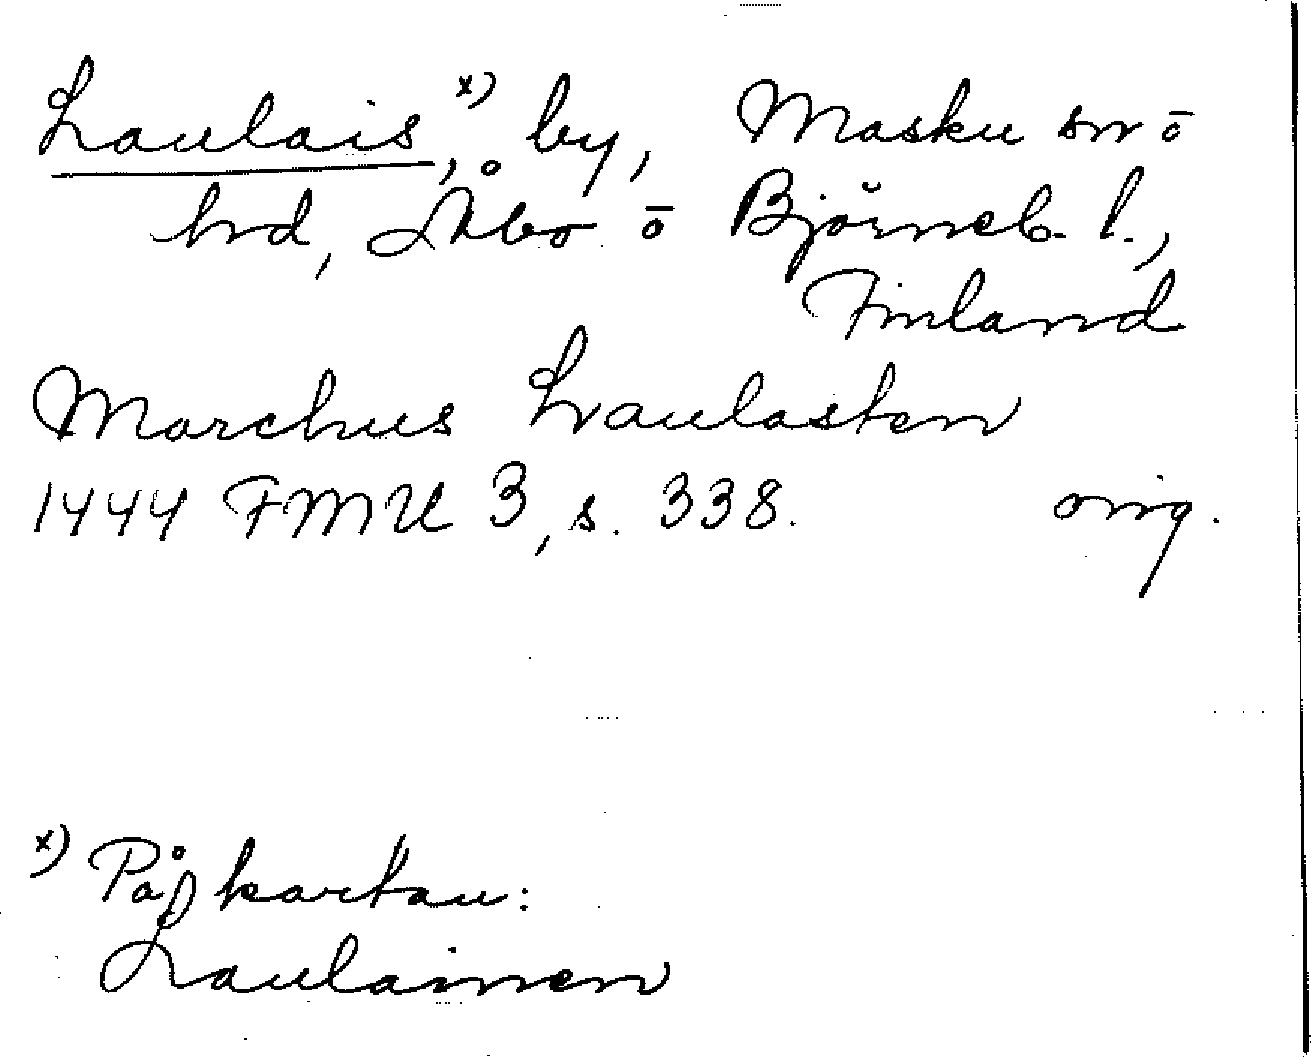 Laulais,ˣ⁾ by, Masku sn ō
hd, Åbo ō Björneb. l.,
Finland
Marchus Laulasten
1444 FMU 3, s. 338. orig.
ˣ⁾ På kartan:
Laulainen